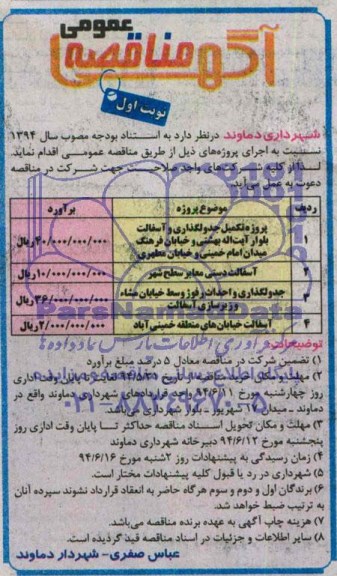 آگهی مناقصه عمومی
نوبت اول
شهرداری دماوند درنظر دارد به استناد بودجه مصوب سال ۱۳۹۴
نسبت به اجرای پروژه‌های ذیل از طریق مناقصه عمومی اقدام نماید
لذا از کلیه شرکت‌های واجد صلاحیت جهت شرکت در مناقصه
دعوت به عمل می‌آید.
ردیف موضوع پروژه برآورد
۱ پروژه تکمیل جدولگذاری و آسفالت
بلوار آیت‌اله بهشتی و خیابان فرهنگ
میدان امام خمینی و خیابان مطهری ۴۰/۰۰۰/۰۰۰/۰۰۰ ریال
۲ آسفالت دستی معابر سطح شهر ۱۰/۰۰۰/۰۰۰/۰۰۰ ریال
۳ جدولگذاری و احداث رفوژ وسط خیابان مشاء
و زیرسازی آسفالت ۳۶/۰۰۰/۰۰۰/۰۰۰ ریال
۴ آسفالت خیابان‌های منطقه خمینی آباد ۲/۰۰۰/۰۰۰/۰۰۰ ریال
توضیحات:
۱) تضمین شرکت در مناقصه معادل ۵ درصد مبلغ برآورد
۲) مهلت و مکان خرید مناقصه از تاریخ لغایت تا پایان وقت اداری
روز چهارشنبه مورخ ۹۴/۶/۱۱ واحد قراردادهای شهرداری دماوند واقع در
دماوند ـ میدان ۱۷ شهریور ـ بلوار شهرداری می‌باشد.
۳) مهلت و مکان تحویل اسناد مناقصه حداکثر تا پایان وقت اداری روز
پنجشنبه مورخ ۹۴/۶/۱۲ دبیرخانه شهرداری دماوند
۴) زمان رسیدگی به پیشنهادات روز ۲شنبه مورخ ۹۴/۶/۱۶
۵) شهرداری در رد یا قبول کلیه پیشنهادات مختار است.
۶) برندگان اول و دوم و سوم هرگاه حاضر به انعقاد قرارداد نشوند سپرده آنان
به ترتیب ضبط خواهد شد.
۷) هزینه چاپ آگهی به عهده برنده مناقصه می‌باشد.
۸) سایر اطلاعات و جزئیات در اسناد مناقصه قید گردیده است.
عباس صفری- شهردار دماوند
ParsNamadData
۰۲۱-۸۸۳۴۹۶۷۰-۵